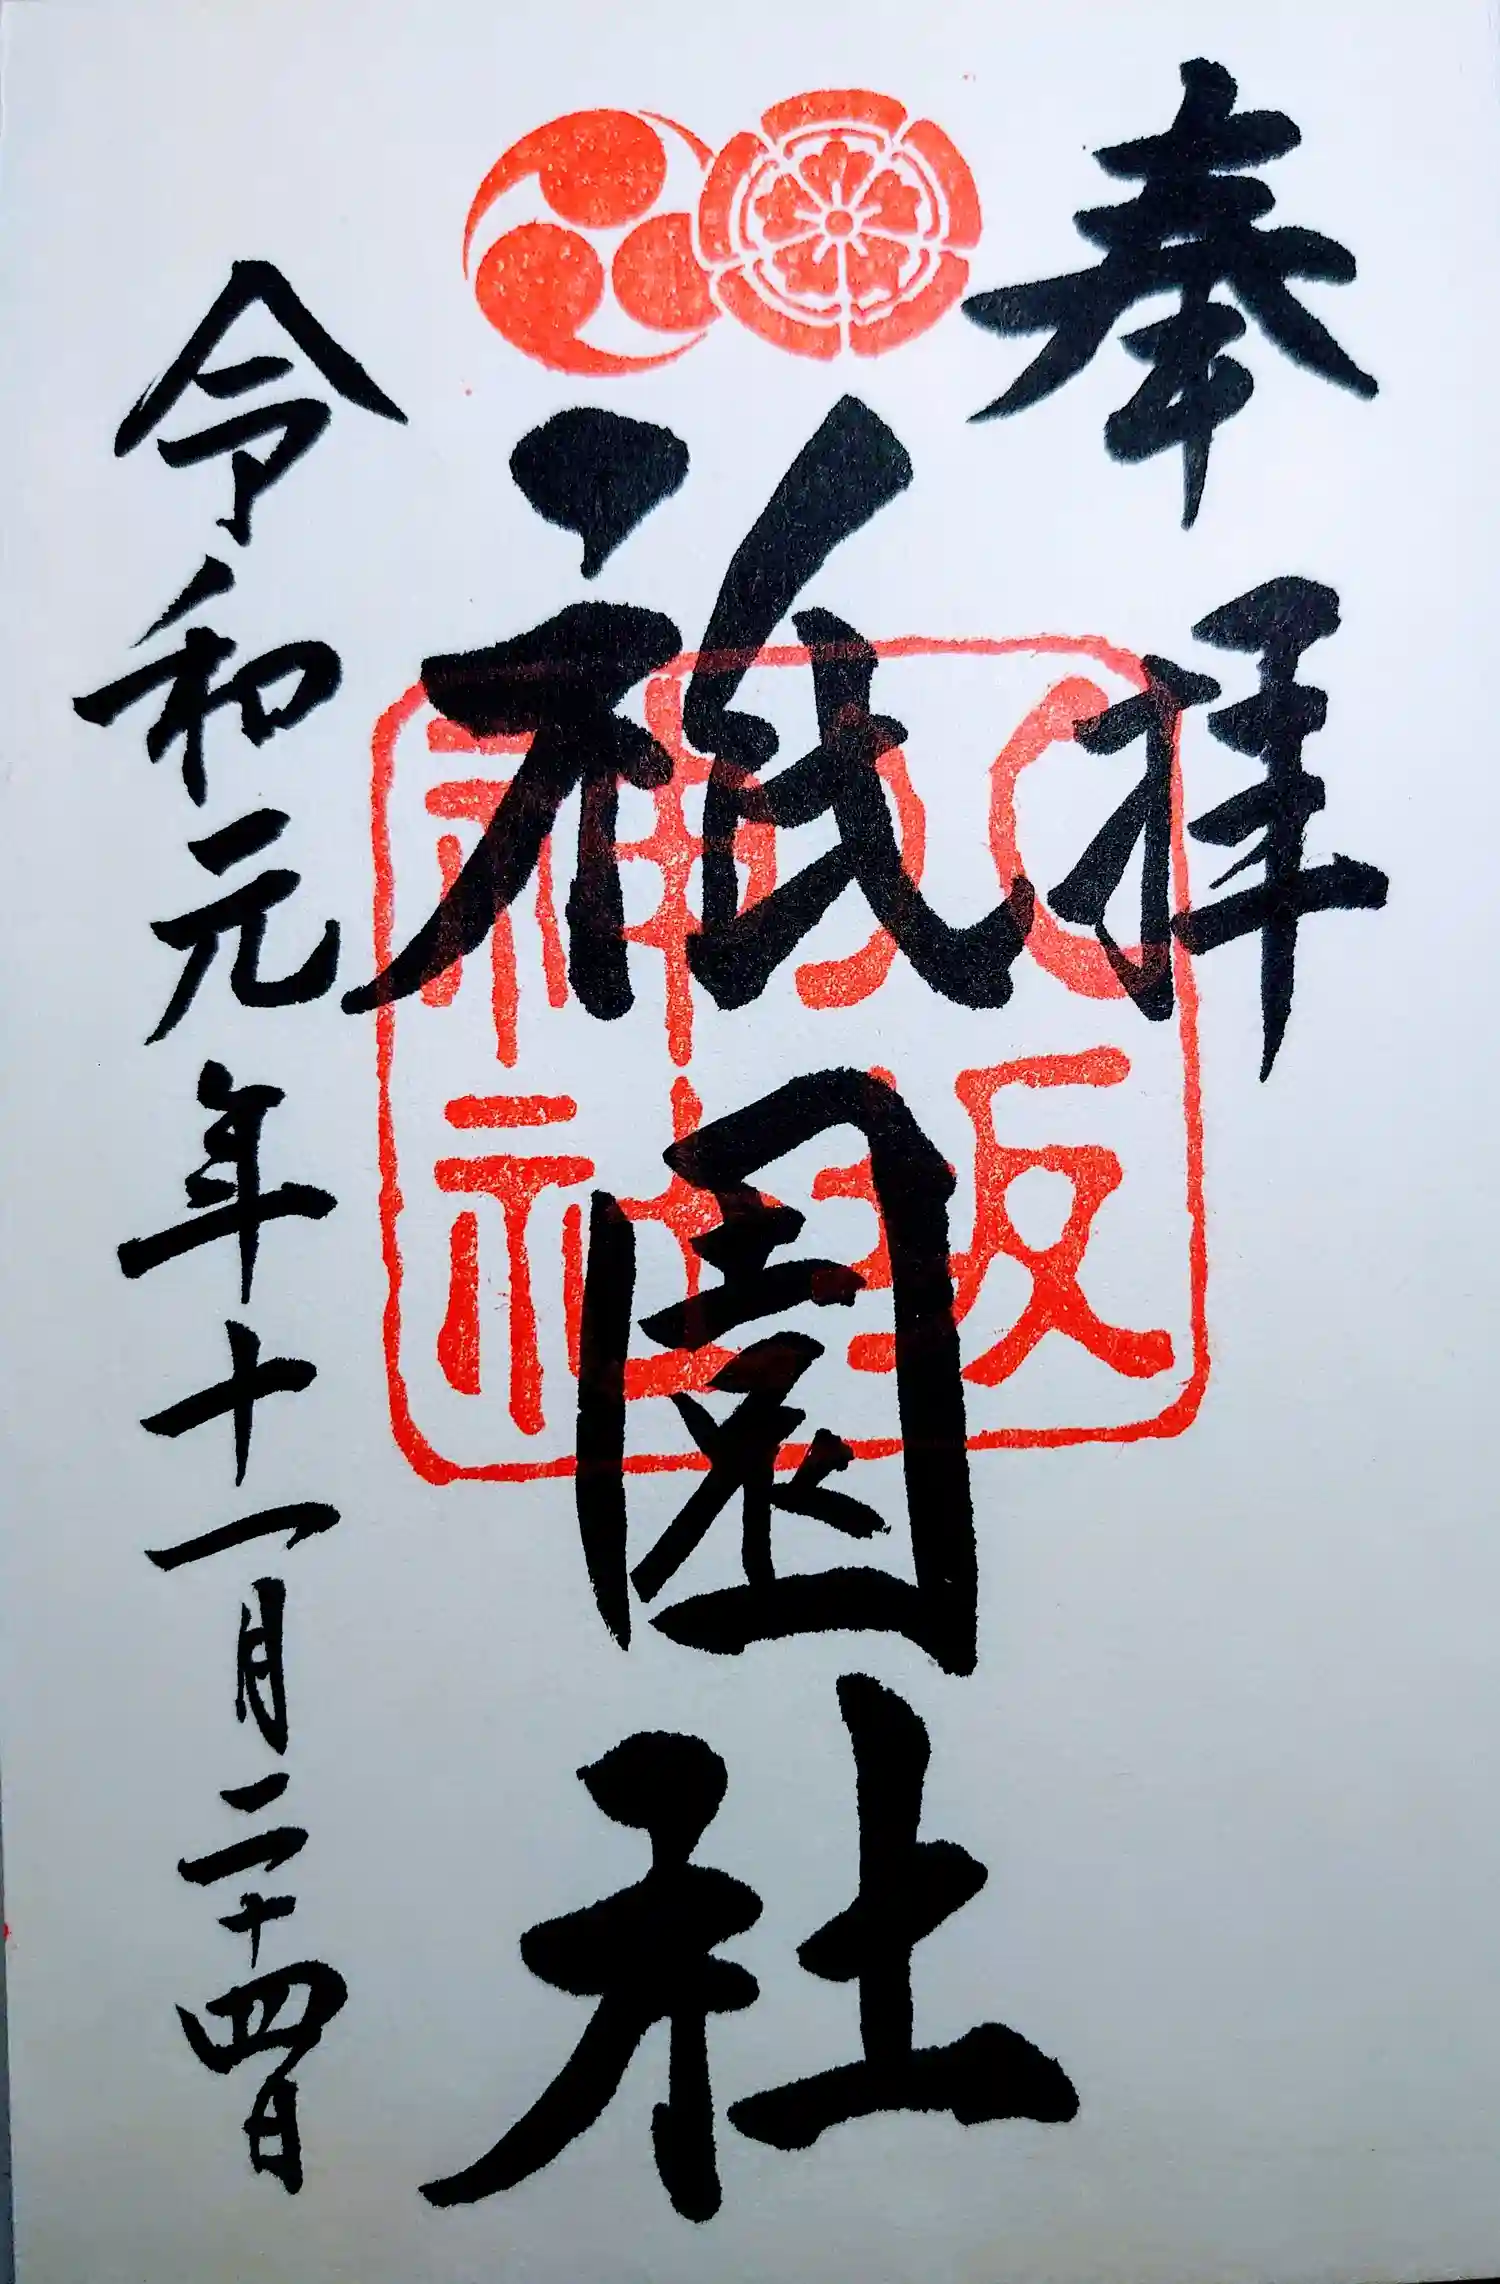 奉拝
祇園社
八坂
神社
令和元年十一月二十四日